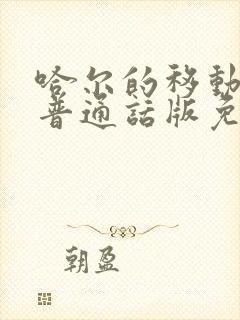 哈尔的移動
普通話版免
朝盈